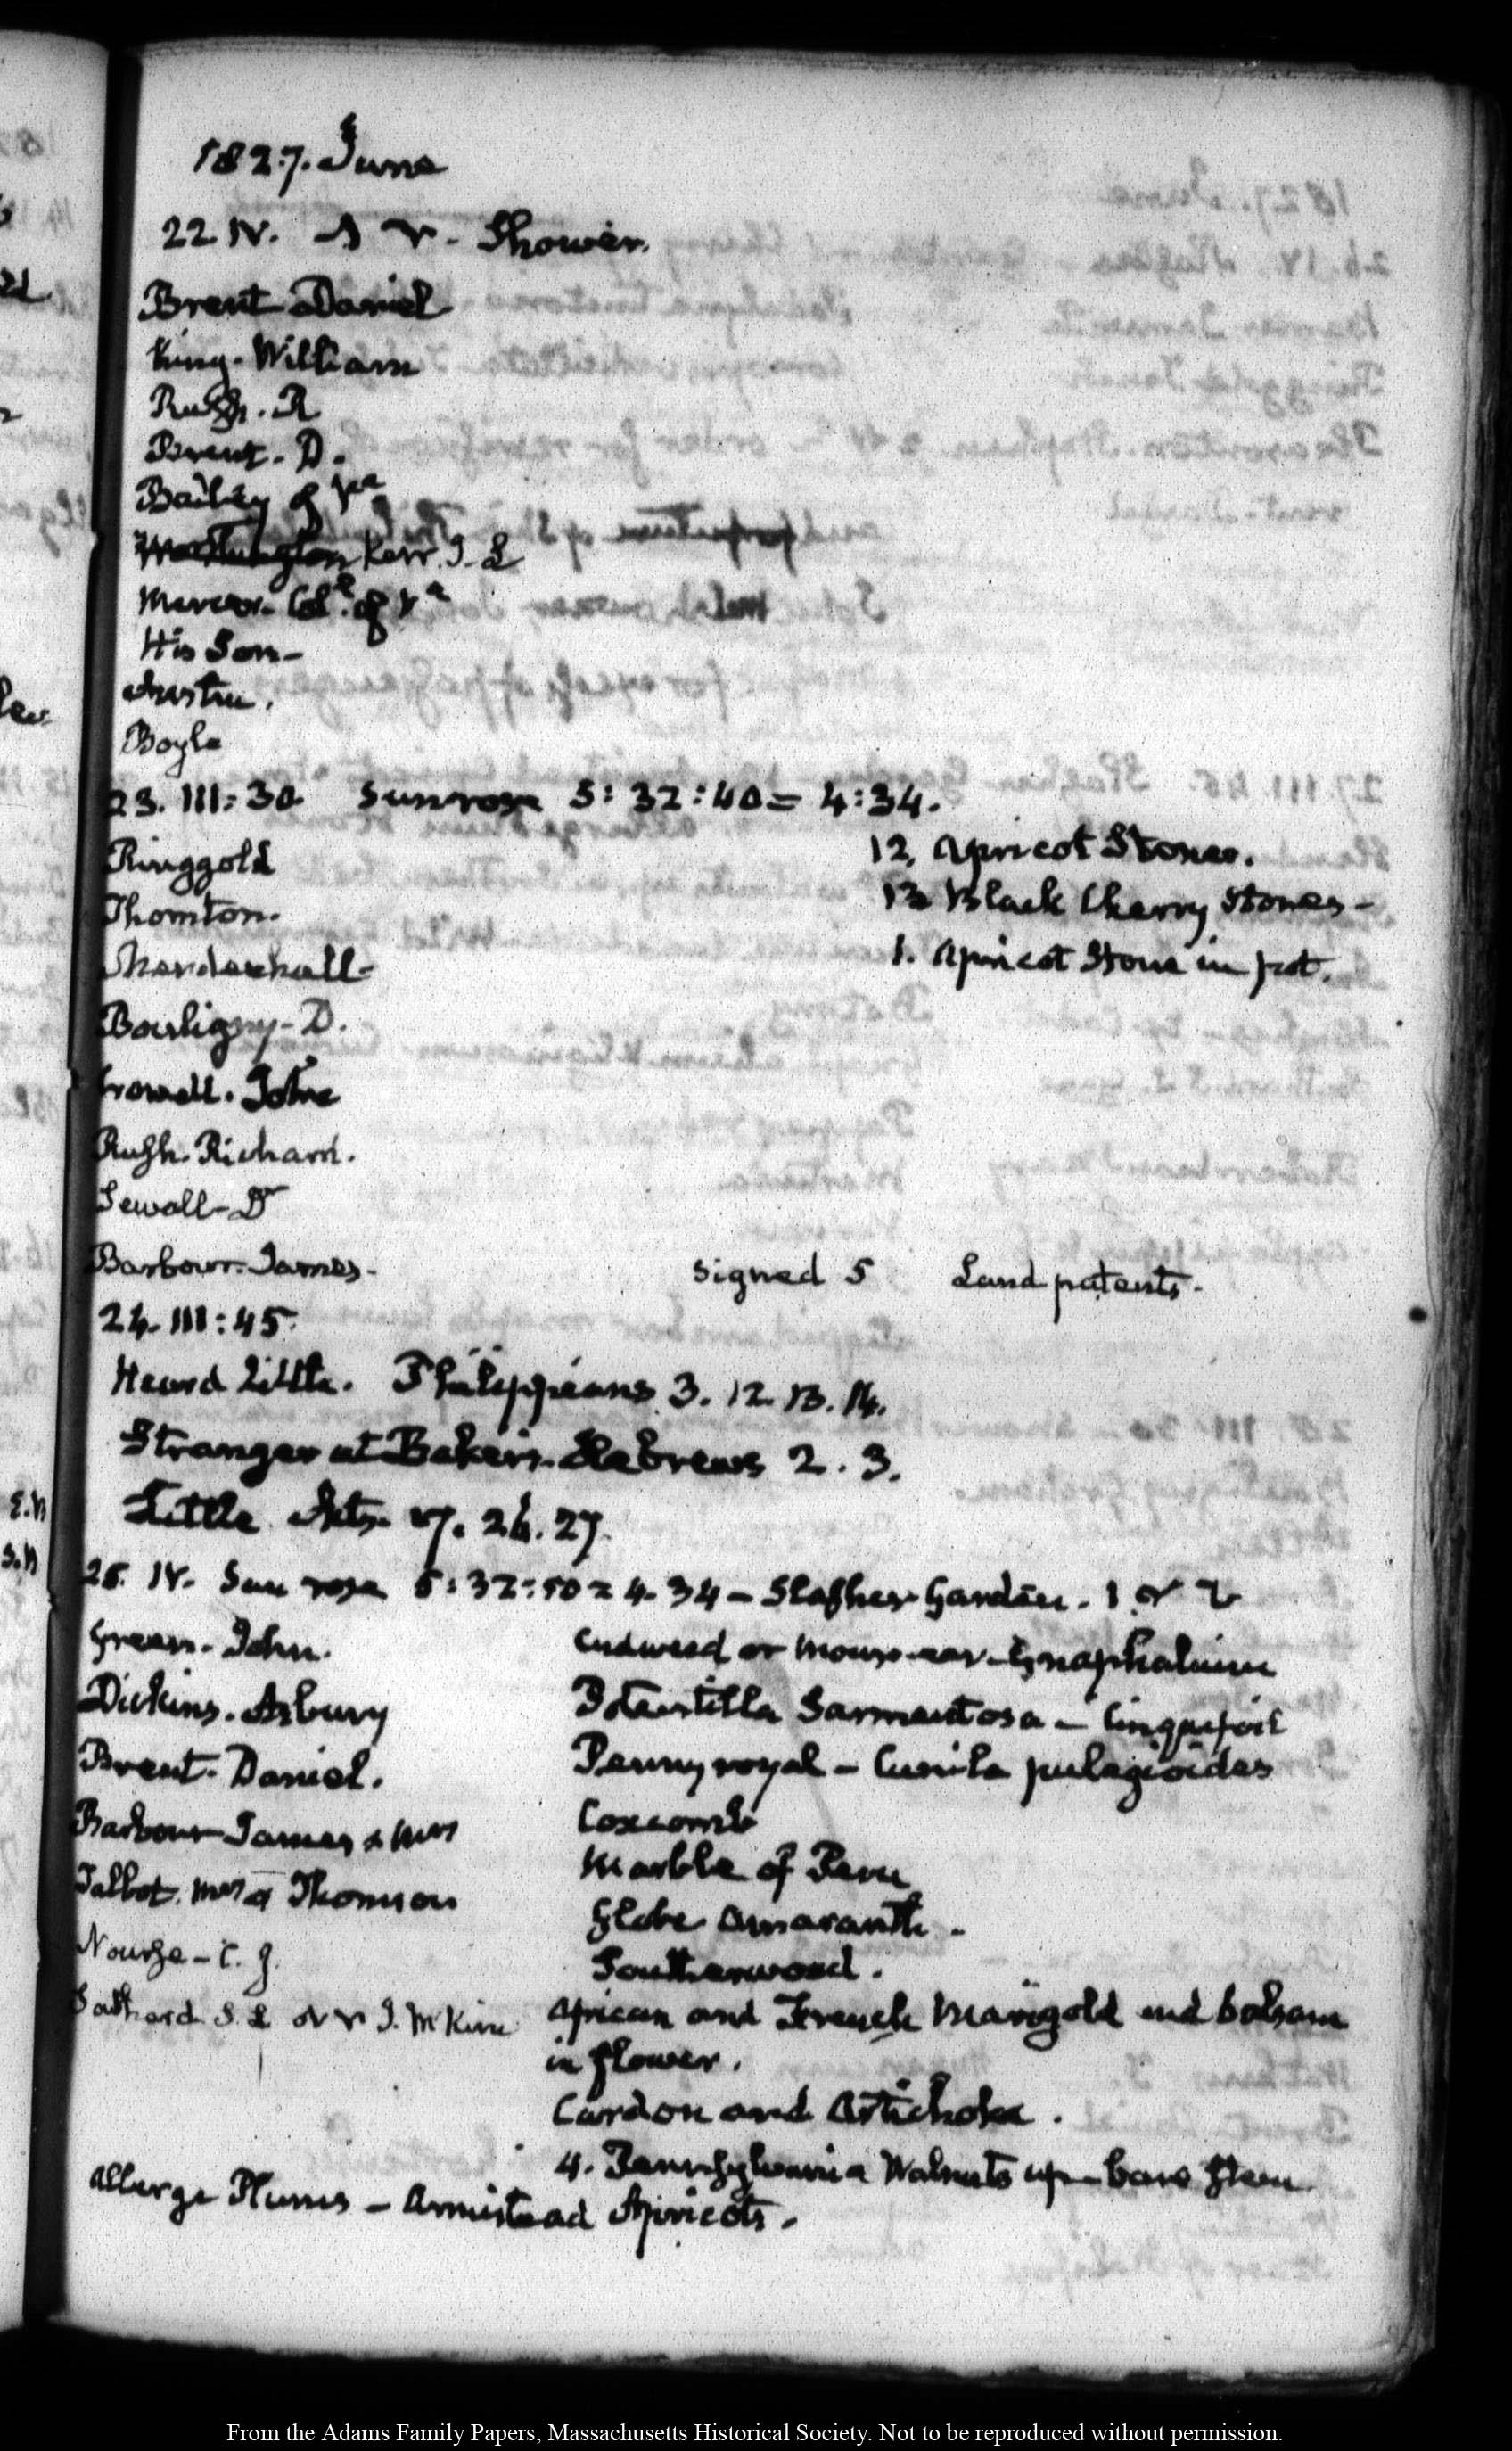 1827. June
22 IV. Shower.
Brent Daniel
King. William
Rush. R
Brent. D.
Bailey of Va
Worthington Kerr. J. L
Mercer. Col. of Va
His Son-
Austin.
Boyle
23. III:30. Sun rose 5:32:40 = 4:34.
Ringgold
12. Apricot Stones.
Thornton.
13 Black Cherry Stones-
Mendenhall-
1. Apricot Stone in pot.
Bouligny- D.
Crowell. John
Rush. Richard.
Sewall- D
Barbour. James.
signed 5 Land patents.
24. III:45.
Heard Little. Philippians 3. 12. 13. 14.
Stranger at Baker's. Hebrews 2. 3.
Little Acts. 17. 26. 27.
25. IV. Sun rose 5:32:50 = 4.34 - Garden.
Green. John.
Cudweed or Mouse-ear- Gnaphalium
Dickins. Asbury
Potentilla Sarmentosa - Cinquefoil
Brent. Daniel.
Pennyroyal - Cunila pulegioides
Barbour James & Mrs
Coxcomb
Marble of Peru
Talbot. Mrs & Thomson
Globe Amaranth -
Nourse - C. J.
Southernwood.
Southard S. L J. McKim
African and French Marigold and balsam
in flower.
Cardon and Artichoke.
4. Pennsylvania Walnuts up- bare stem
Alberge Plums - Armistead Apricots.
From the Adams Family Papers, Massachusetts Historical Society. Not to be reproduced without permission.